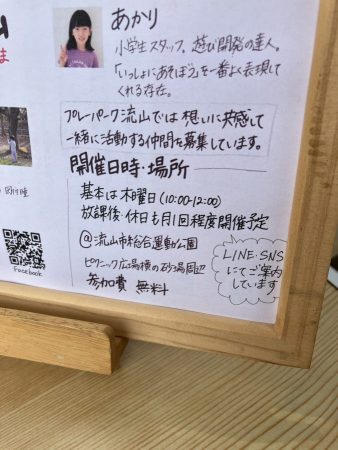 あかり
小学生スタッフ。遊び開発の達人。
「いっしょにあそぼう」を一番よく表現して
くれる存在。
プレーパーク流山では想いに共感して
一緒に活動する仲間を募集しています。
開催日時・場所
基本は木曜日(10:00-12:00)
放課後・休日も月1回程度開催予定
@流山市総合運動公園
ピクニック広場横の砂場周辺
参加費 無料
LINE・SNS
にてご案内
しています
Facebook